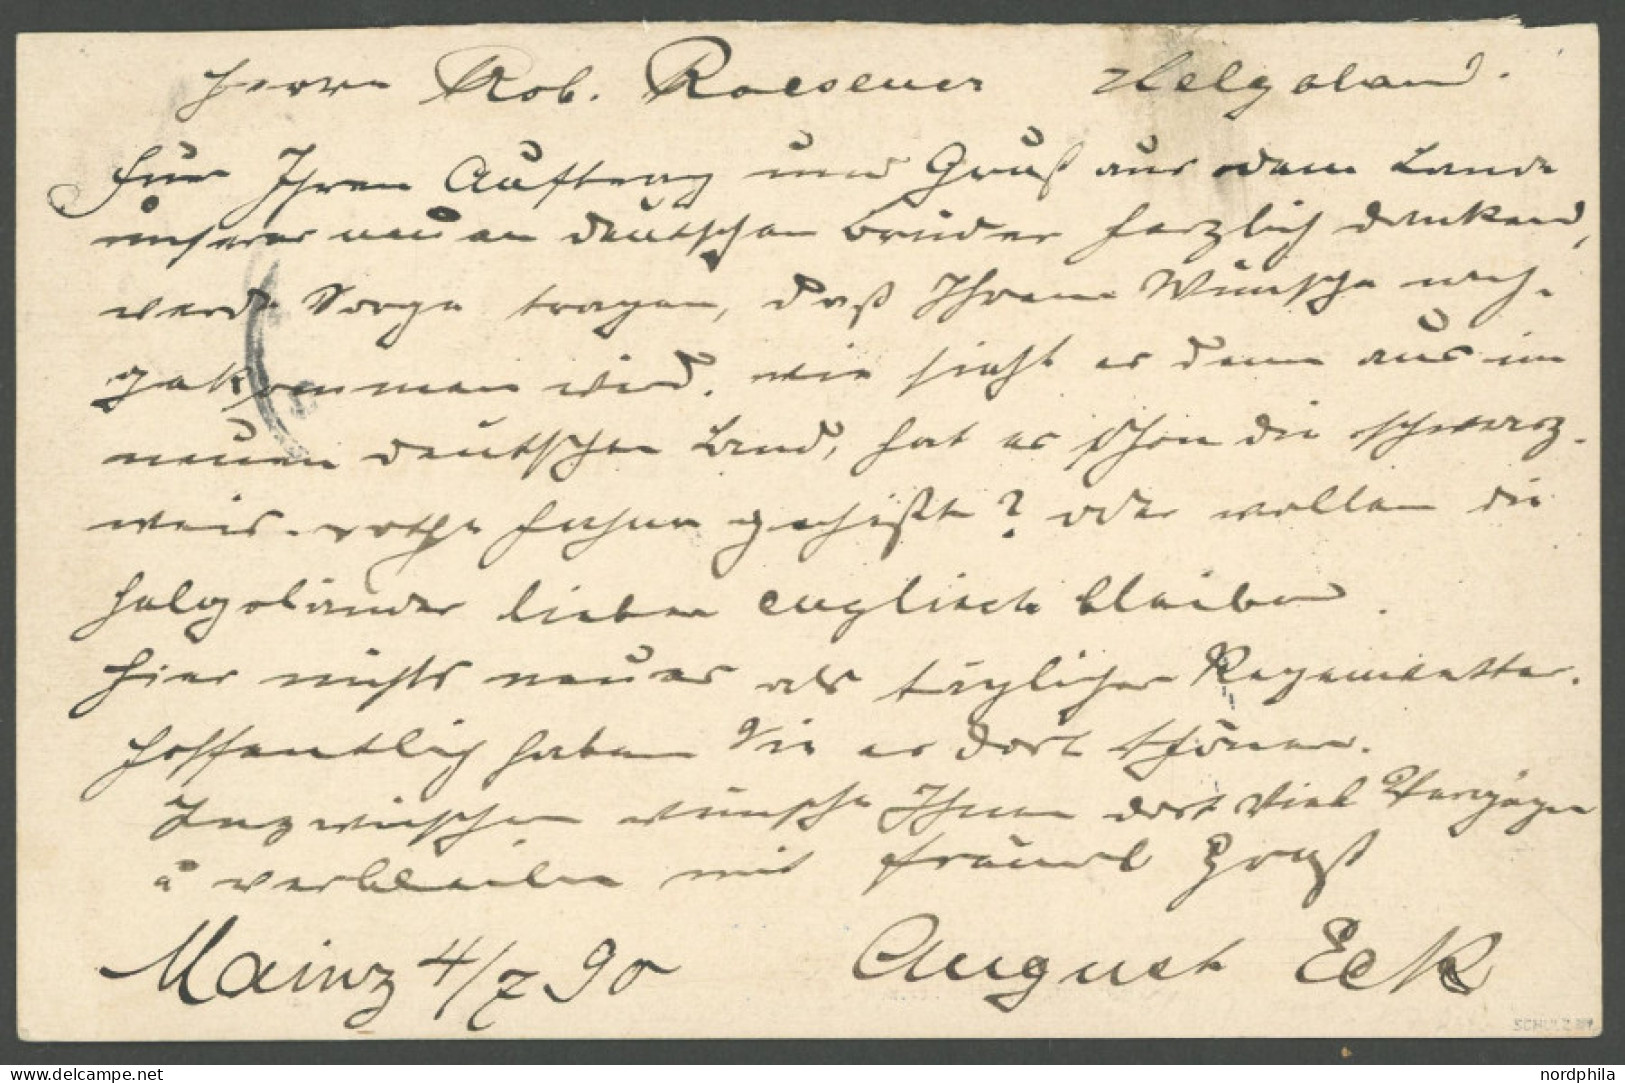 Herrn Rob. Roesener Helgoland.
Für Ihren Auftrag und Gruß aus dem Lande
unserer neuen deutschen Brüder herzlich dankend,
werde Sorge tragen, daß Ihrem Wunsche nach-
gekommen wird. Wie sieht es denn aus im
neuen deutschen Land, hat es schon die schwarz-
weis-rothe Fahne gehißt? oder wollen die
Helgoländer lieber englisch bleiben.
Hier nichts neues als täglicher Regenwetter.
Hoffentlich haben Sie es dort schöner.
Inzwischen wünsche Ihnen dort viel Vergnügen
u verbleibe mit freundl Gruß
Mainz 4/7 90 August Eck
SCHULZ
www.delcampe.net
nordphila